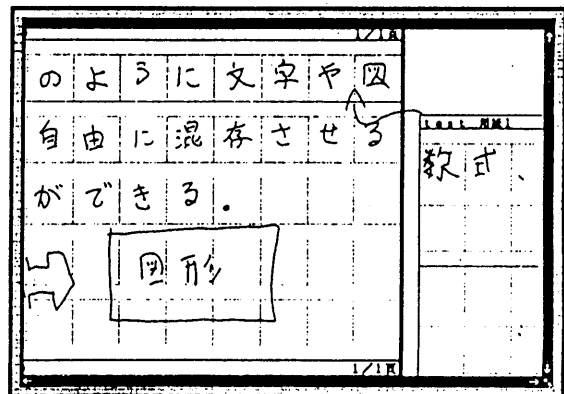 1/1頁
のように文字や図
自由に混存させる
ができる.
図形
1/1頁
test 用紙1
数式、